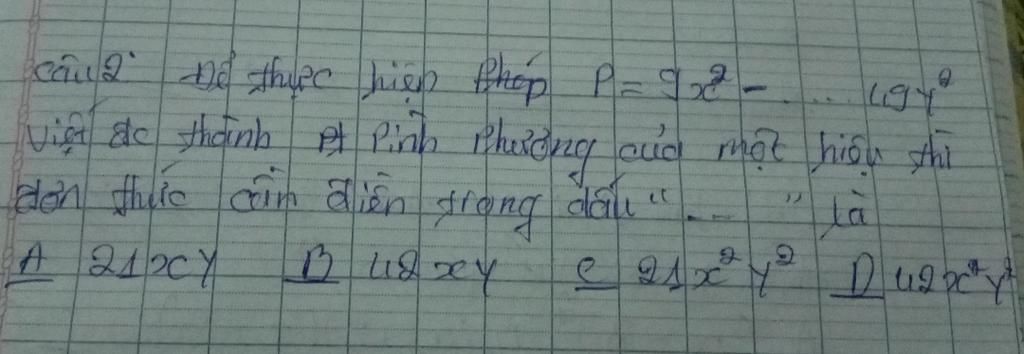 câu 2: Để thực hiện phép P = 9x² - ... 49y²
viết đc thành bình phương của một hiệu thì
đơn thức cần điền trong dấu "...." là
A 21xy B 42xy C 21x²y² D 42x²y²